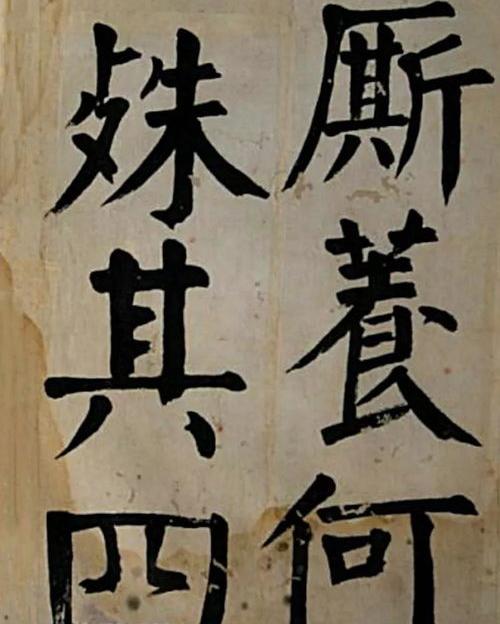 厮養何
殊其四